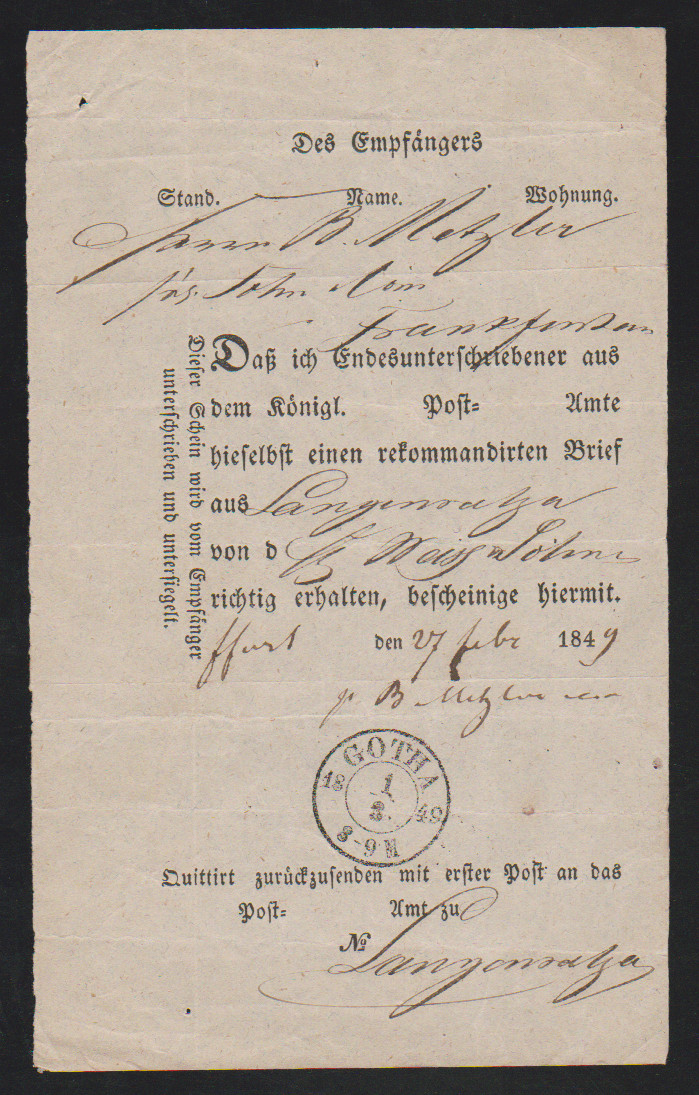 Des Empfängers
Stand. Name. Wohnung.
Herrn B. Metzler
Sohn
Frankfurt am
Daß ich Endesunterschriebener aus
dem Königl. Post= Amte
hieselbst einen rekommandirten Brief
aus Langensalza
von d Weiss u Söhne
richtig erhalten, bescheinige hiermit.
ffurt den 27 febr 1849
p B Metzler
Dieser Schein wird vom Empfänger
unterschrieben und untersiegelt.
GOTHA
18 1 49
3.
8-9 M
Quittirt zurückzusenden mit erster Post an das
Post= Amt zu
No
Langensalza